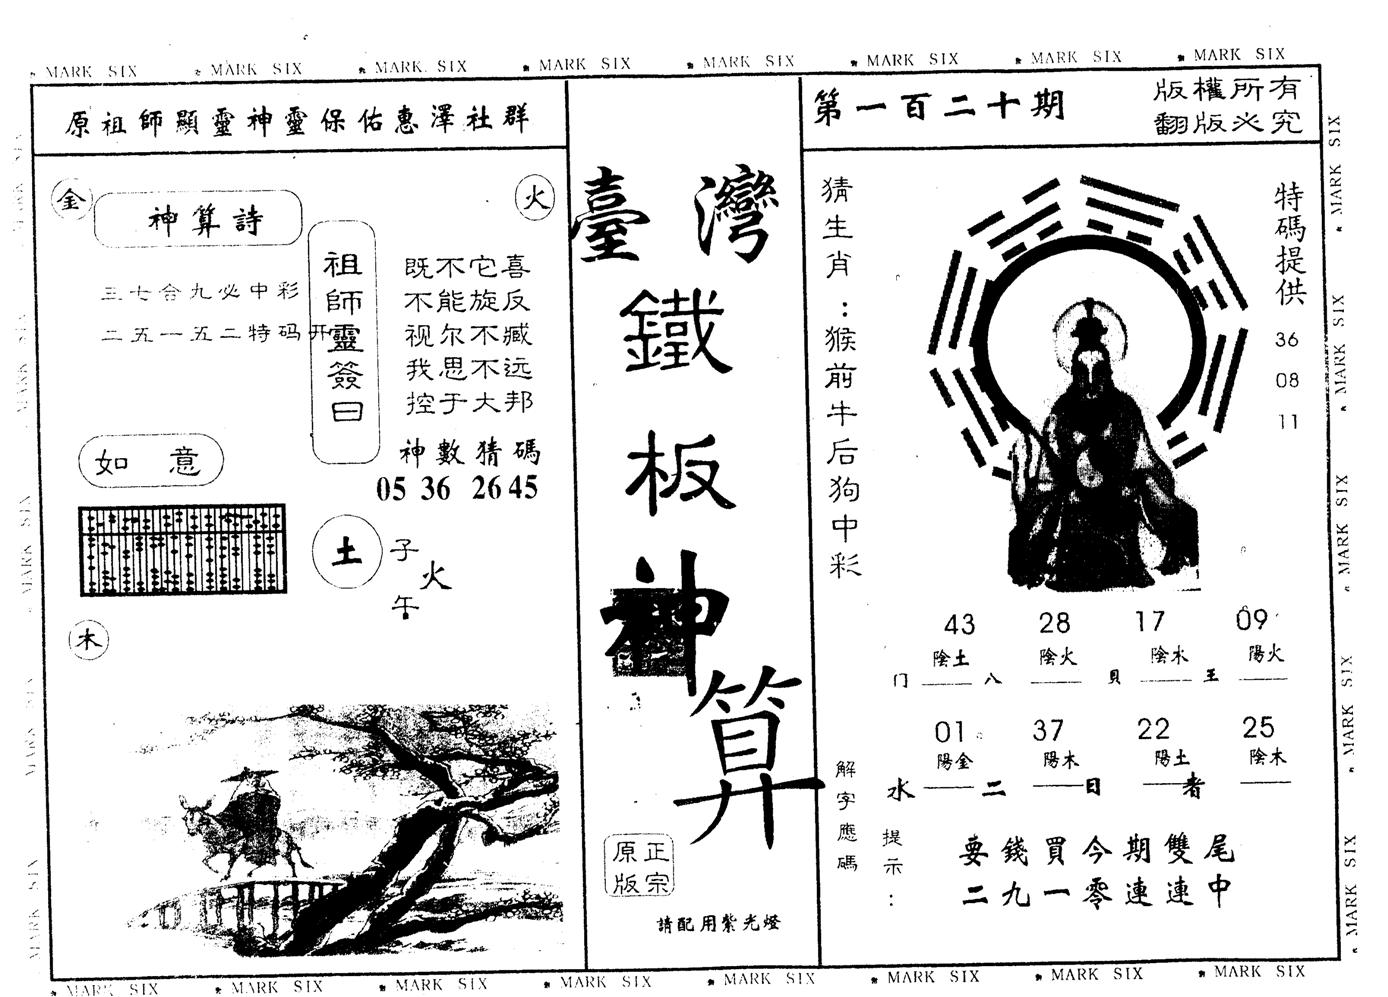 MARK SIX MARK SIX MARK SIX MARK SIX MARK SIX MARK SIX MARK SIX MARK SIX
原祖師顯靈神靈保佑惠澤社群
金
火
神算詩
三七合九必中彩
二五一五二特码开
祖師靈簽曰
既不它喜
不能旋反
视尔不臧
我思不远
控于大邦
神數猜碼
05 36 26 45
如意
土
子
火
午
木
臺灣
鐵
板
神
算
正宗
原版
請配用紫光燈
第一百二十期
版權所有
翻版必究
猜生肖:猴前牛后狗中彩
特碼提供
36
08
11
43 28 17 09
陰土 陰火 陰水 陽火
门 八 貝 王
01 37 22 25
陽金 陽木 陽土 陰木
水 二 日 者
解字應碼
提示:
要錢買今期雙尾
二九一零連連中
MARK SIX MARK SIX MARK SIX MARK SIX MARK SIX MARK SIX MARK SIX MARK SIX
MARK SIX MARK SIX MARK SIX MARK SIX MARK SIX